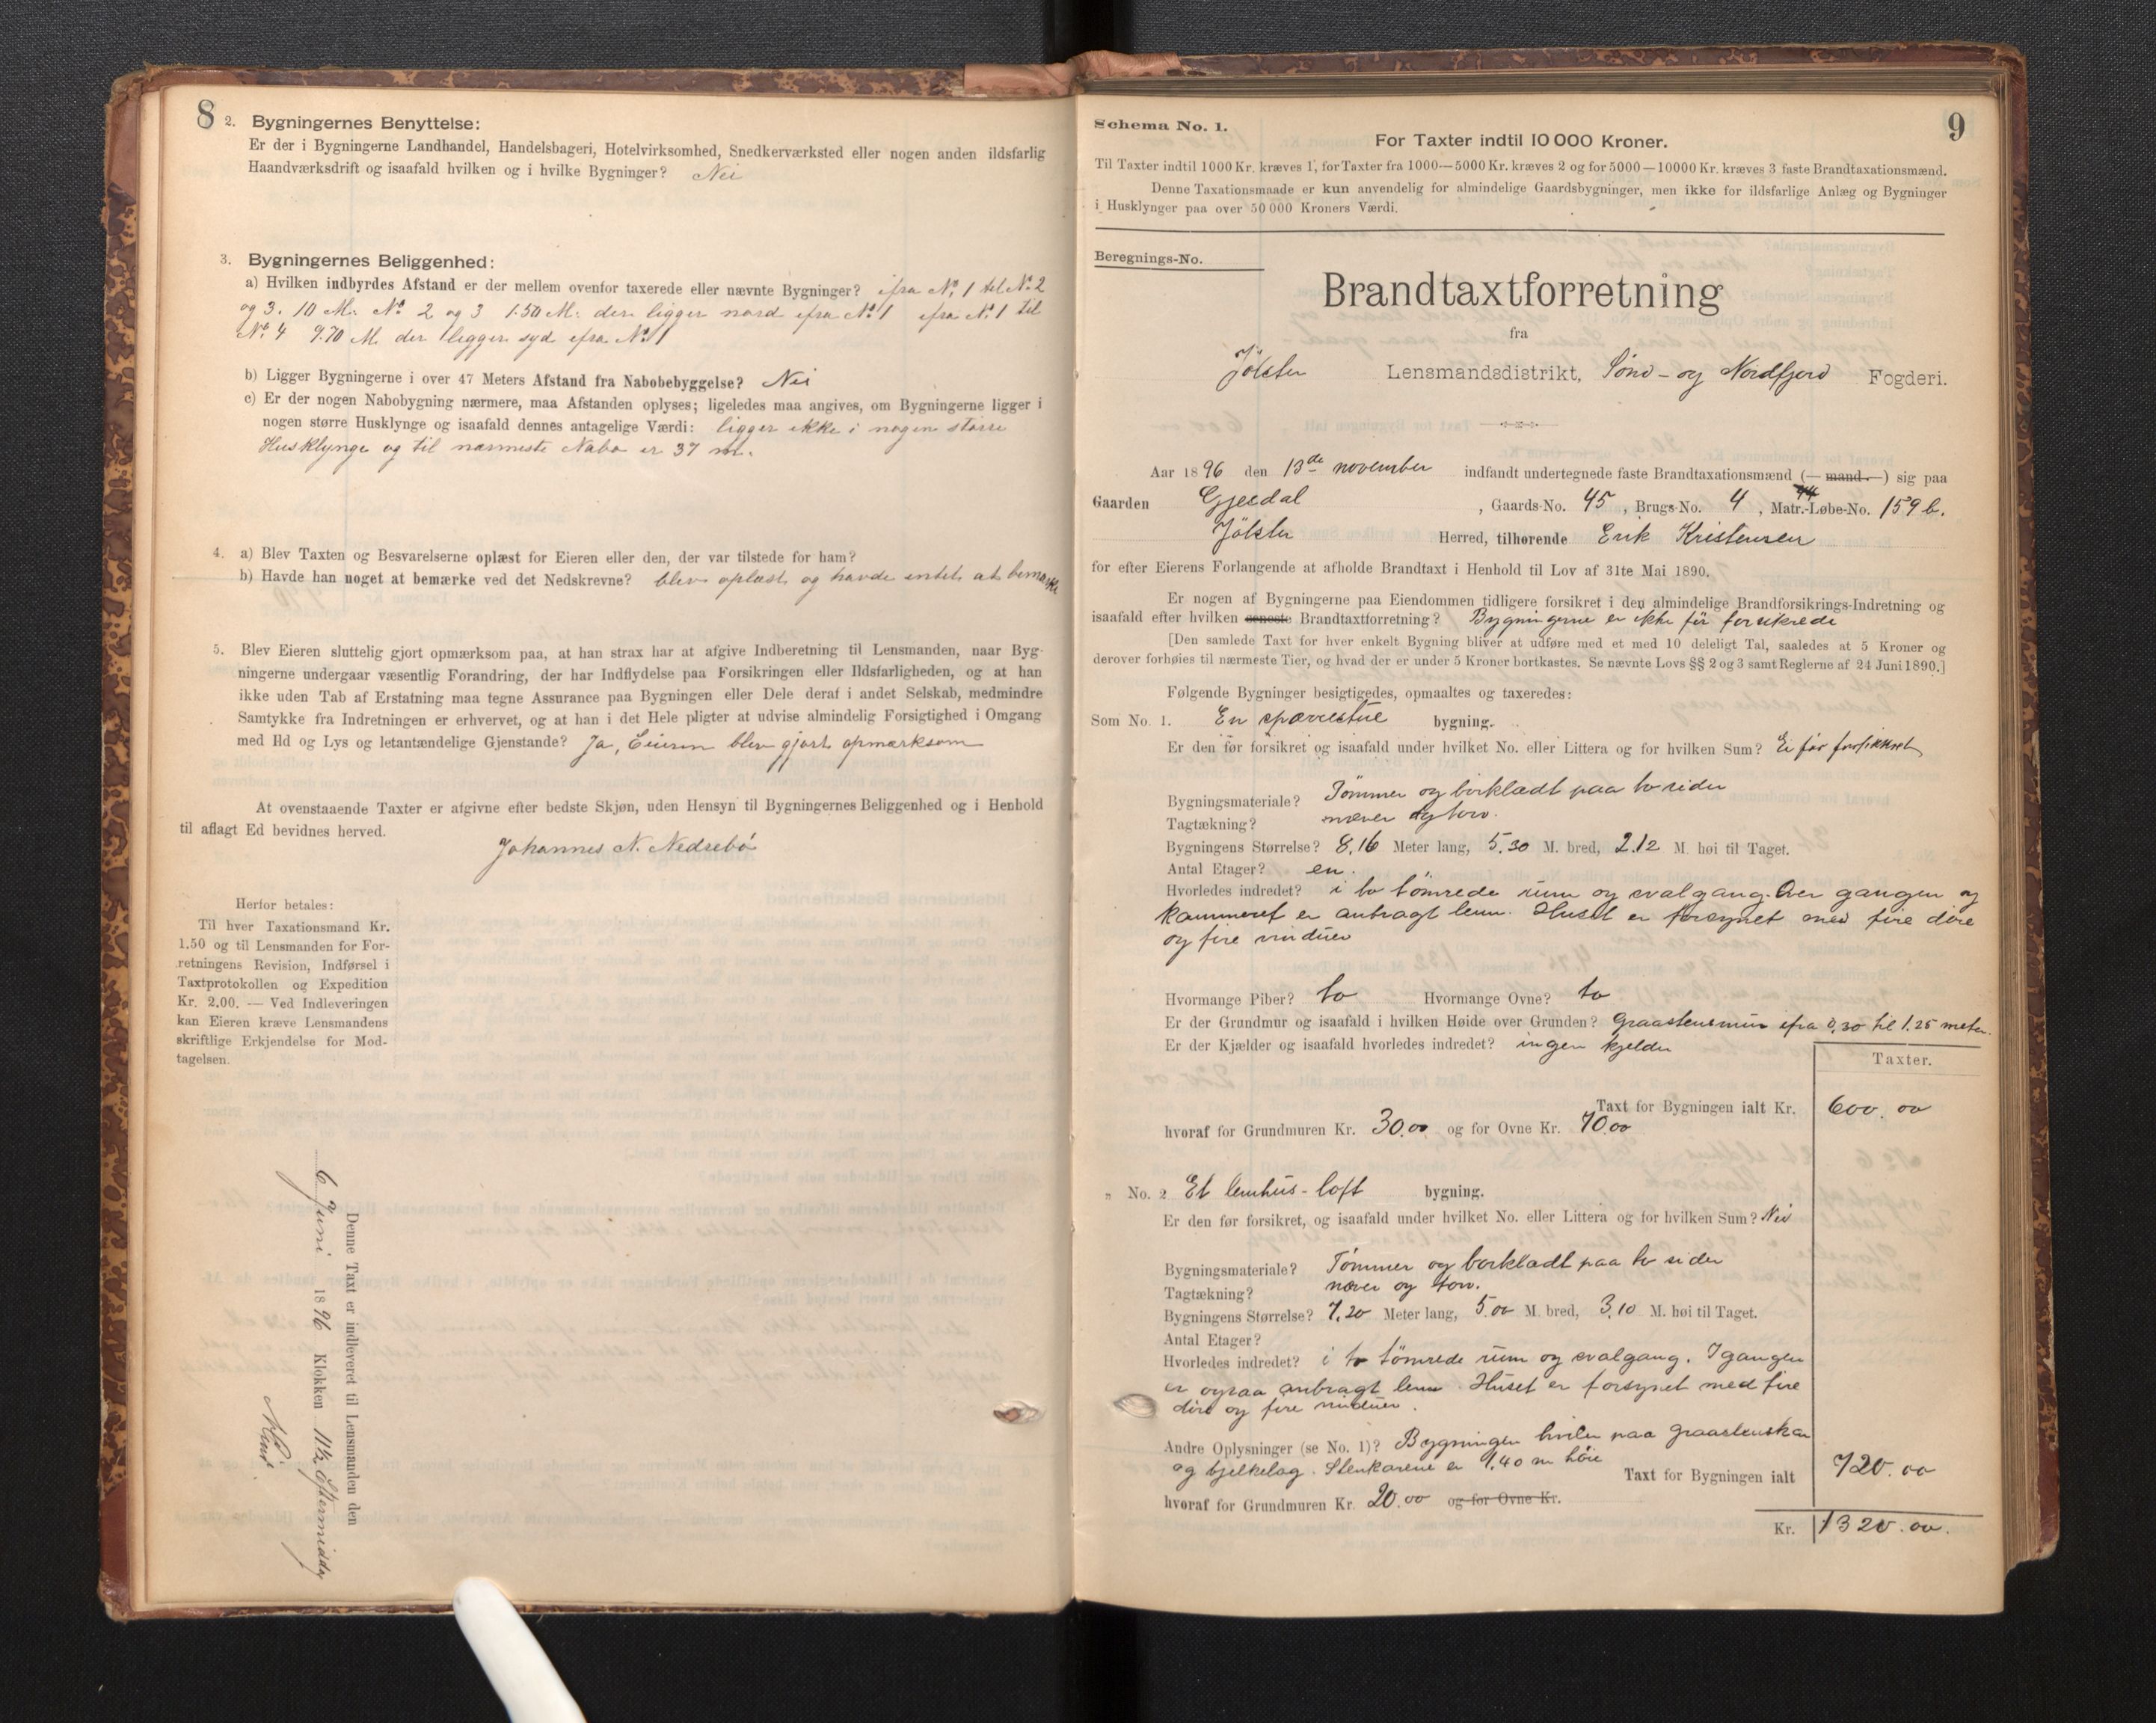 8
2. Bygningernes Benyttelse:
Er der i Bygningerne Landhandel, Handelsbageri, Hotelvirksomhed, Snedkerværksted eller nogen anden ildsfarlig
Haandværksdrift og isaafald hvilken og i hvilke Bygninger? Nei
3. Bygningernes Beliggenhed:
a) Hvilken indbyrdes Afstand er der mellem ovenfor taxerede eller nævnte Bygninger? ifra No. 1 til No. 2
og 3. 10 M. No. 2 og 3 1.50 M. der ligger nord ifra No. 1 ifra No. 1 til
No. 4 9.70 M. der ligger syd ifra No. 1
b) Ligger Bygningerne i over 47 Meters Afstand fra Nabobebyggelse? Nei
c) Er der nogen Nabobygning nærmere, maa Afstanden oplyses; ligeledes maa angives, om Bygningerne ligger i
nogen større Husklynge og isaafald dennes antagelige Værdi: ligger ikke i nogen større
Husklynge og til nærmeste Nabo er 37 m.
4. a) Blev Taxten og Besvarelserne oplæst for Eieren eller den, der var tilstede for ham?
b) Havde han noget at bemærke ved det Nedskrevne? blev oplæst og havde intet at bemærke
5. Blev Eieren sluttelig gjort opmærksom paa, at han strax har at afgive Indberetning til Lensmanden, naar Byg-
ningerne undergaar væsentlig Forandring, der har Indflydelse paa Forsikringen eller Ildsfarligheden, og at han
ikke uden Tab af Erstatning maa tegne Assurance paa Bygningen eller Dele deraf i andet Selskab, medmindre
Samtykke fra Indretningen er erhvervet, og at han i det Hele pligter at udvise almindelig Forsigtighed i Omgang
med Ild og Lys og letantændelige Gjenstande? Ja, Eieren blev gjort opmærksom
At ovenstaaende Taxter er afgivne efter bedste Skjøn, uden Hensyn til Bygningernes Beliggenhed og i Henhold
til aflagt Ed bevidnes herved.
Johannes N. Nedrebö
Herfor betales:
Til hver Taxationsmand Kr.
1.50 og til Lensmanden for For-
retningens Revision, Indførsel i
Taxtprotokollen og Expedition
Kr. 2.00. — Ved Indleveringen
kan Eieren kræve Lensmandens
skriftlige Erkjendelse for Mod-
tagelsen.
Denne Taxt er indleveret til Lensmanden den
6 Juni 1896 Klokken 11½ Eftermiddag
9
Schema No. 1.
For Taxter indtil 10 000 Kroner.
Til Taxter indtil 1000 Kr. kræves 1, for Taxter fra 1000—5000 Kr. kræves 2 og for 5000—10000 Kr. kræves 3 faste Brandtaxationsmænd.
Denne Taxationsmaade er kun anvendelig for almindelige Gaardsbygninger, men ikke for ildsfarlige Anlæg og Bygninger
i Husklynger paa over 50 000 Kroners Værdi.
Beregnings-No.
Brandtaxtforretning
fra
Jölster Lensmandsdistrikt, Sönd- og Nordfjord Fogderi.
Aar 1896 den 13de november indfandt undertegnede faste Brandtaxationsmænd (— mand.—) sig paa
Gaarden Gjesdal, Gaards-No. 45, Brugs-No. 4, Matr.-Løbe-No. 159 b.
Jölster Herred, tilhørende Erik Kristensen
for efter Eierens Forlangende at afholde Brandtaxt i Henhold til Lov af 31te Mai 1890.
Er nogen af Bygningerne paa Eiendommen tidligere forsikret i den almindelige Brandforsikrings-Indretning og
isaafald efter hvilken seneste Brandtaxtforretning? Bygningerne er ikke för forsikrede
[Den samlede Taxt for hver enkelt Bygning bliver at udføre med et med 10 deleligt Tal, saaledes at 5 Kroner og
derover forhøies til nærmeste Tier, og hvad der er under 5 Kroner bortkastes. Se nævnte Lovs §§ 2 og 3 samt Reglerne af 24 Juni 1890.]
Følgende Bygninger besigtigedes, opmaaltes og taxeredes:
Som No. 1. En spærrestue bygning.
Er den før forsikret og isaafald under hvilket No. eller Littera og for hvilken Sum? Ei før forsikkret
Bygningsmateriale? Tömmer og bordklædt paa to sider
Tagtækning? næver og torv.
Bygningens Størrelse? 8.16 Meter lang, 5.30 M. bred, 2.12 M. høi til Taget.
Antal Etager? en.
Hvorledes indredet? i to tömrede rum og svalgang. Over gangen og
kammeret er anbragt lem. Huset er forsynet med fire döre
og fire vinduer
Hvormange Piber? to Hvormange Ovne? to
Er der Grundmur og isaafald i hvilken Høide over Grunden? Graastensmur ifra 0,30 til 1.25 meter.
Er der Kjælder og isaafald hvorledes indredet? ingen kjelder
Taxter.
Taxt for Bygningen ialt Kr. 600.00
hvoraf for Grundmuren Kr. 30.00 og for Ovne Kr. 70.00
„ No. 2 Et lemhus-loft bygning.
Er den før forsikret, og isaafald under hvilket No. eller Littera og for hvilken Sum? Nei
Bygningsmateriale? Tömmer og bordklædt paa to sider
Tagtækning? næver og torv.
Bygningens Størrelse? 7.20 Meter lang, 5.00 M. bred, 3.10 M. høi til Taget.
Antal Etager?
Hvorledes indredet? i to tömrede rum og svalgang. I gangen
er ogsaa anbragt lem. Huset er forsynet med fire
döre og fire vinduer.
Andre Oplysninger (se No. 1)? Bygningen hviler paa graastenskar
og bjelkelag. Stenkarene er 1.40 m höie
Taxt for Bygningen ialt 720.00
hvoraf for Grundmuren Kr. 20.00 og for Ovne Kr.
Kr. 1320.00.